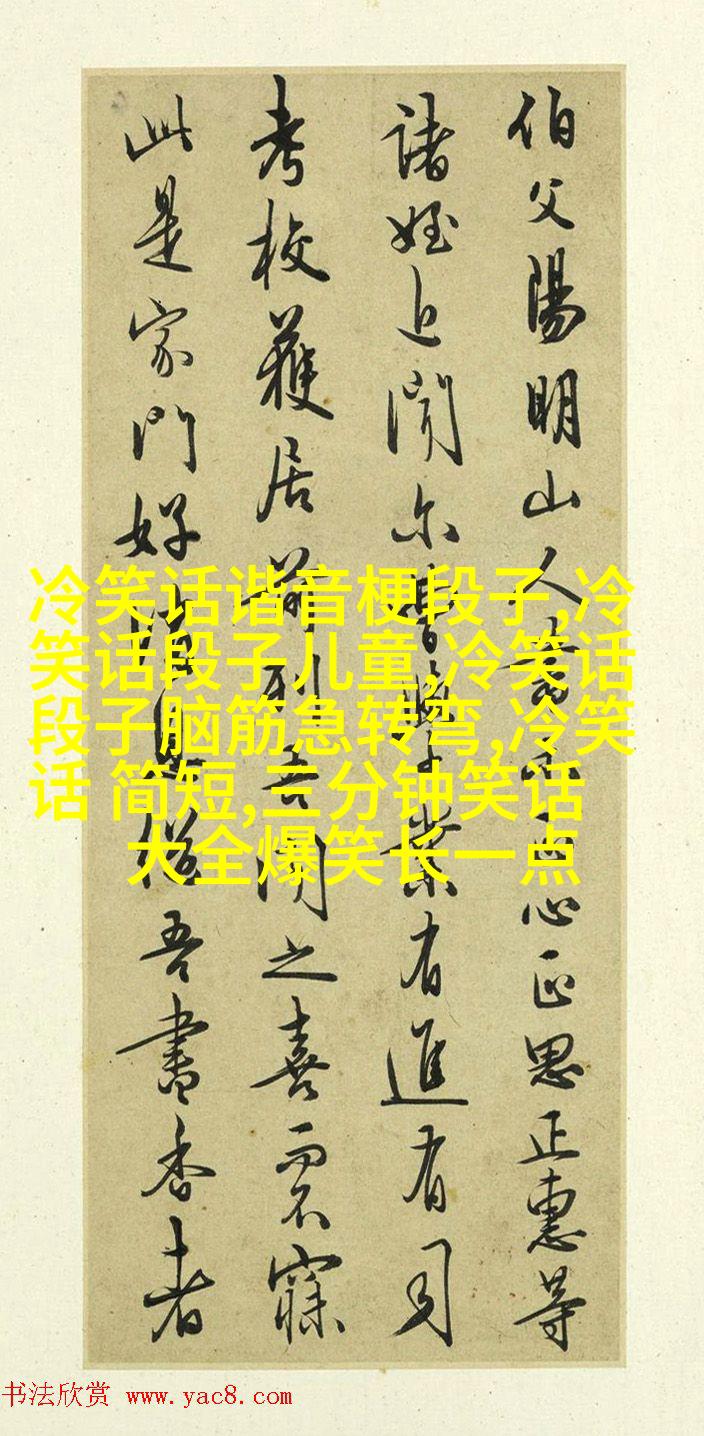 伯父陽明山人書心正思正惠等
諸姪近聞尔曹業有進有司
考校獲居前列吾聞之喜而不寐
此是家門好消息繼吾書香者
冷笑话谐音梗段子,冷
笑话段子儿童,冷笑话
段子脑筋急转弯,冷笑
话 简短,三分钟笑话
大全爆笑长一点
书法欣赏 www.yac8.com